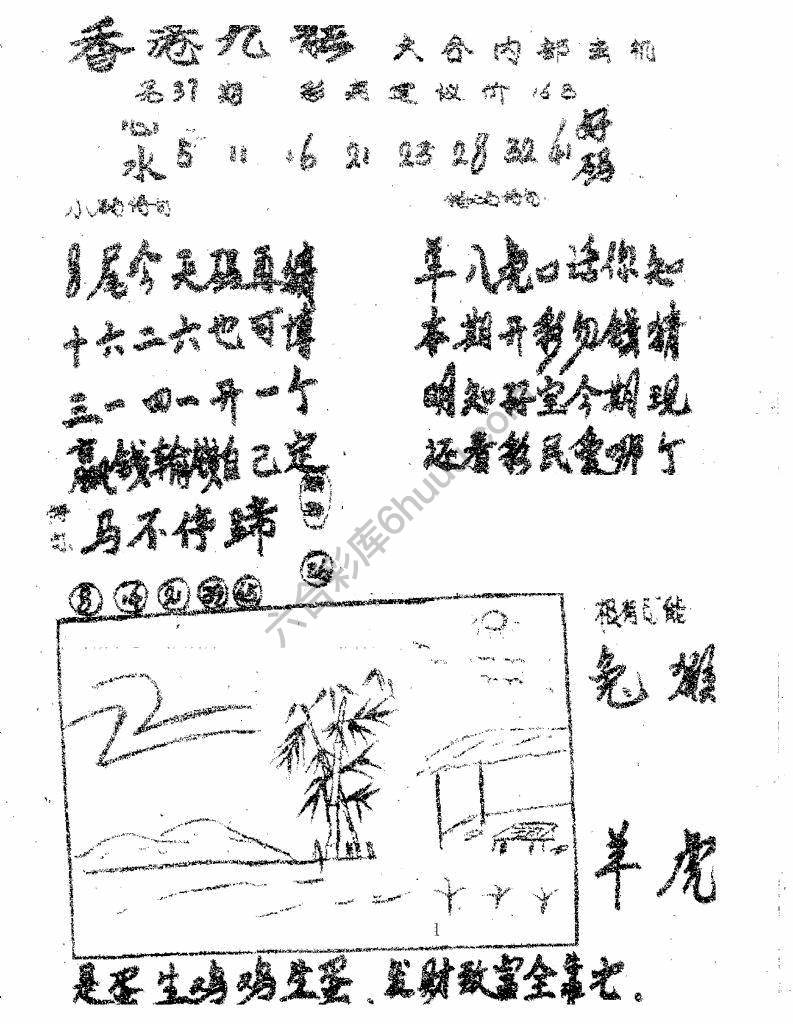 香港九龙 六合内部玄机
第37期 彩票建议价 16
心水 5 11 16 21 23 28 32 41 好码
小 诗句 诗句
尾今天强再续 羊八虎口话你知
十六二六也可博 本期开彩勿钱猜
三一四一开一个 明知好宝今期现
赢钱输钱自己定 还看彩民爱哪个
马不停蹄
8 16 21 39 45 36
极有可能
兔 猴
羊 虎
是蛋生鸡鸡生蛋、发财致富全靠它。
六合彩库6huu.com